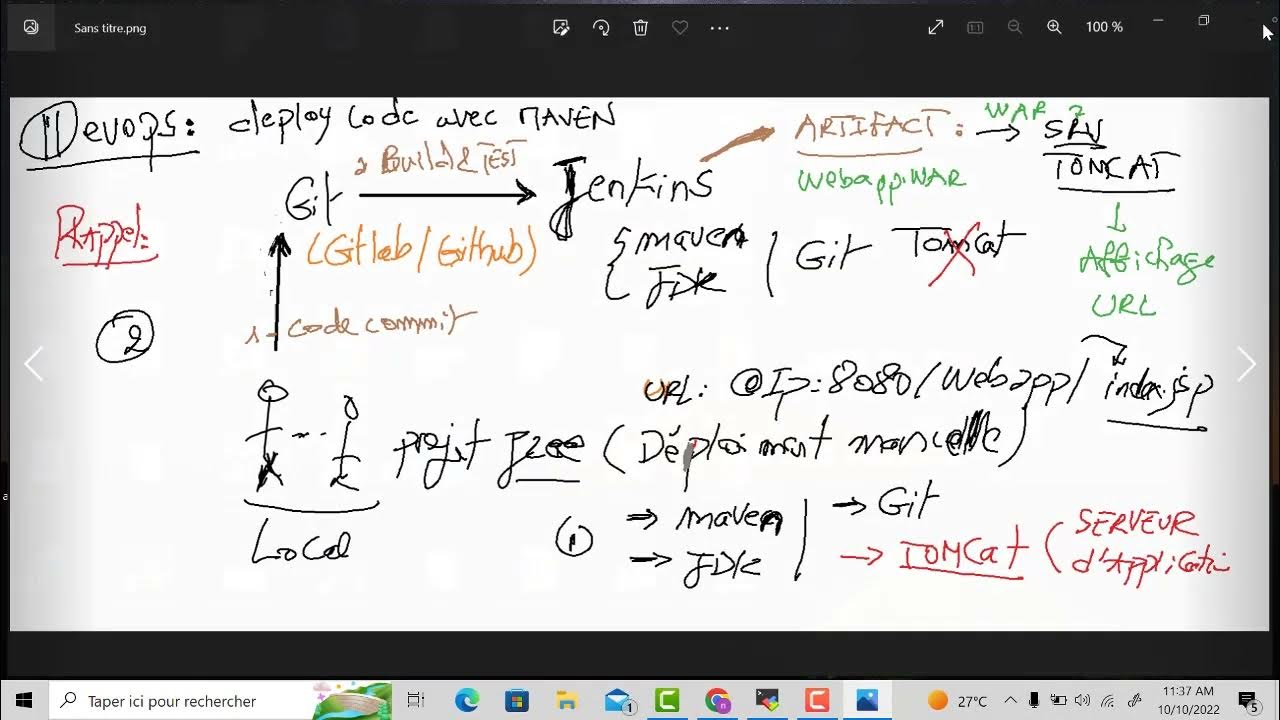 Sans titre.png
100 %
Devops: deploy code avec MAVEN
Rappel:
Git
2 Build & TEST
(Gitlab / Github)
Jenkins
{ maven
JDK
Git TOMCat
ARTIFACT:
WAR ?
SRV
TOMCAT
Webapp.WAR
Affichage
URL
2
1- code commit
URL: @Ip:8080/Webapp/index.jsp
projet J2ee (Déploiment manuelle)
Local
1
⇒ maven
→ JDK
→ Git
→ TOMCat (SERVEUR
d'Application
Taper ici pour rechercher
1
27°C
11:37 AM
10/10/2022
5